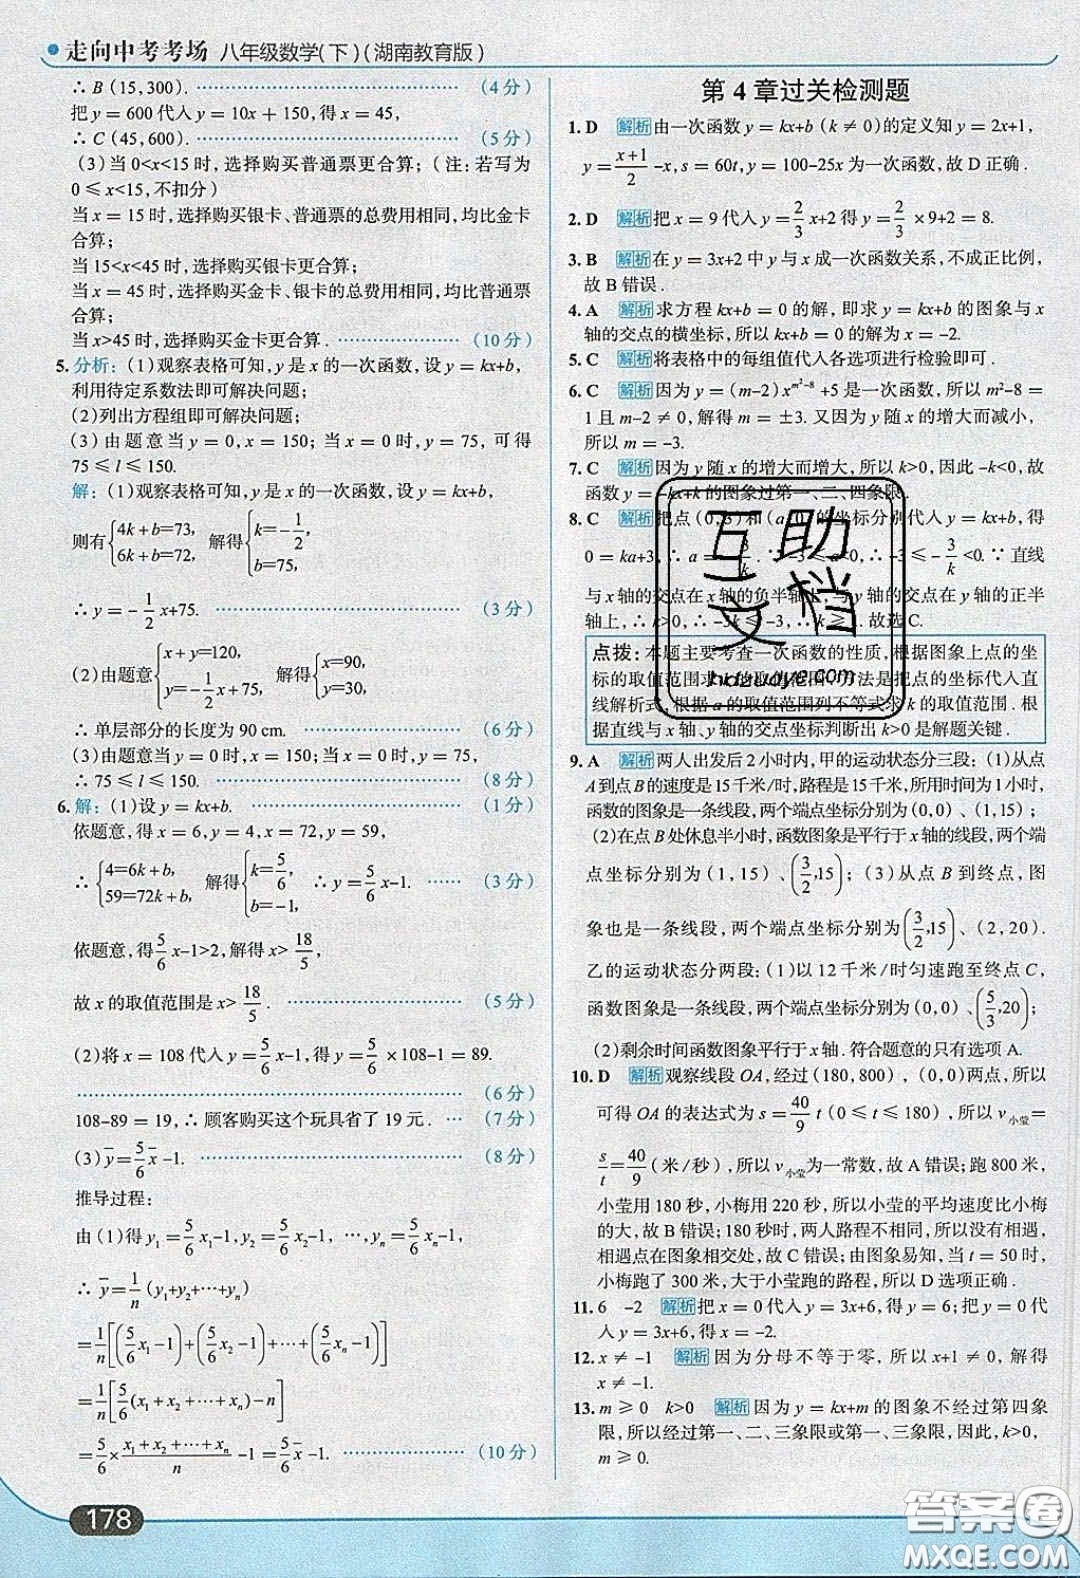 走向中考考场 八年级数学(下)(湖南教育版)
∴ B (15,300). (4分)
把 y = 600 代入 y = 10x + 150, 得 x = 45,
∴ C (45,600). (5分)
(3)当 0<x<15 时,选择购买普通票更合算;(注:若写为
0 ≤ x<15,不扣分)
当 x = 15 时,选择购买银卡、普通票的总费用相同,均比金卡
合算;
当 15<x<45 时,选择购买银卡更合算;
当 x = 45 时,选择购买金卡、银卡的总费用相同,均比普通票
合算;
当 x>45 时,选择购买金卡更合算. (10分)
5. 分析:(1)观察表格可知,y 是 x 的一次函数,设 y = kx+b,
利用待定系数法即可解决问题;
(2)列出方程组即可解决问题;
(3)由题意当 y = 0, x = 150;当 x = 0 时, y = 75, 可得
75 ≤ l ≤ 150.
解:(1)观察表格可知,y 是 x 的一次函数,设 y = kx+b,
则有 {4k+b=73, 6k+b=72, 解得 {k=-1/2, b=75,
∴ y = -1/2 x+75. (3分)
(2)由题意 {x+y=120, y=-1/2 x+75, 解得 {x=90, y=30,
∴ 单层部分的长度为 90 cm. (6分)
(3)由题意当 y = 0 时,x = 150;当 x = 0 时,y = 75,
∴ 75 ≤ l ≤ 150. (8分)
6. 解:(1)设 y = kx+b. (1分)
依题意,得 x = 6, y = 4, x = 72, y = 59,
∴ {4=6k+b, 59=72k+b, 解得 {k=5/6, b=-1, ∴ y=5/6 x-1. (3分)
依题意,得 5/6 x-1>2, 解得 x> 18/5,
故 x 的取值范围是 x> 18/5. (5分)
(2)将 x = 108 代入 y = 5/6 x-1, 得 y = 5/6 ×108-1 = 89.
(6分)
108-89 = 19, ∴ 顾客购买这个玩具省了 19 元. (7分)
(3) y̅=5/6 x̅ -1. (8分)
推导过程:
由(1)得 y₁=5/6 x₁-1, y₂=5/6 x₂-1, …, yₙ=5/6 xₙ-1,
∴ y̅=1/n (y₁+y₂+…+yₙ)
=1/n[(5/6 x₁-1)+(5/6 x₂-1)+…+(5/6 xₙ-1)]
=1/n[5/6(x₁+x₂+…+xₙ)-n]
=5/6×(x₁+x₂+…+xₙ)/n -1=5/6 x̅ -1. (10分)
第 4 章过关检测题
1. D 解析 由一次函数 y = kx+b (k ≠ 0)的定义知 y = 2x+1,
y=(x+1)/2 -x, s = 60t, y = 100-25x 为一次函数,故 D 正确.
2. D 解析 把 x = 9 代入 y = 2/3 x+2 得 y = 2/3 ×9+2 = 8.
3. B 解析 在 y = 3x+2 中 y 与 x 成一次函数关系,不成正比例,
故 B 错误.
4. A 解析 求方程 kx+b = 0 的解,即求 y = kx+b 的图象与 x
轴的交点的横坐标,所以 kx+b = 0 的解为 x = -2.
5. C 解析 将表格中的每组值代入各选项进行检验即可.
6. C 解析 因为 y = (m-2)x^(m²-8) +5 是一次函数,所以 m²-8 =
1 且 m-2 ≠ 0,解得 m = ±3. 又因为 y 随 x 的增大而减小,
所以 m = -3.
7. C 解析 因为 y 随 x 的增大而增大,所以 k>0,因此 -k<0,故
函数 y = -kx+k 的图象过第一、二、四象限.
8. C 解析 把点 (0,3) 和 (a,0) 的坐标分别代入 y = kx+b, 得
0 = ka+3, ∴ a = -3/k. ∵ -3 ≤ a<0, ∴ -3 ≤ -3/k <0. ∵ 直线
与 x 轴的交点在 x 轴的负半轴上,与 y 轴的交点在 y 轴的正半
轴上, ∴ k>0, ∴ -3k ≤ -3, ∴ k ≥ 1. 故选 C.
点拨:本题主要考查一次函数的性质,根据图象上点的坐
标的取值范围求 k 的取值范围,方法是把点的坐标代入直
线解析式,根据 a 的取值范围列不等式求 k 的取值范围.根
据直线与 x 轴、y 轴的交点坐标判断出 k>0 是解题关键.
9. A 解析 两人出发后 2 小时内,甲的运动状态分三段:(1)从点
A 到点 B 的速度是 15 千米/时,路程是 15 千米,所用时间为 1 小时,
函数的图象是一条线段,两个端点坐标分别为(0,0)、(1,15);
(2)在点 B 处休息半小时,函数图象是平行于 x 轴的线段,两个端
点坐标分别为(1,15)、(3/2,15);(3)从点 B 到终点,图
象也是一条线段,两个端点坐标分别为(3/2,15)、(2,20).
乙的运动状态分两段:(1)以 12 千米/时匀速跑至终点 C,
函数图象是一条线段,两个端点坐标分别为(0,0)、(5/3,20);
(2)剩余时间函数图象平行于 x 轴.符合题意的只有选项 A.
10. D 解析 观察线段 OA,经过(180,800),(0,0)两点,所以
可得 OA 的表达式为 s = 40/9 t (0 ≤ t ≤ 180), 所以 v小莹=
s/t=40/9 (米/秒), 所以 v小莹为一常数,故 A 错误;跑 800 米,
小莹用 180 秒,小梅用 220 秒,所以小莹的平均速度比小梅
的大,故 B 错误;180 秒时,两人路程不相同,所以没有相遇,
相遇点在图象相交处,故 C 错误;由图象易知,当 t = 50 时,
小梅跑了 300 米,大于小莹跑的路程,所以 D 选项正确.
11. 6 -2 解析 把 x = 0 代入 y = 3x+6,得 y = 6;把 y = 0 代
入 y = 3x+6,得 x = -2.
12. x ≠ -1 解析 因为分母不等于零,所以 x+1 ≠ 0,解得
x ≠ -1.
13. m ≥ 0 k>0 解析 因为 y = kx+m 的图象不经过第四象
限,所以经过第一、二、三象限或第一、三象限,因此 k>0,
m ≥ 0.
178
互助
文档
hdzuoye.com
答案圈
MXQE.COM